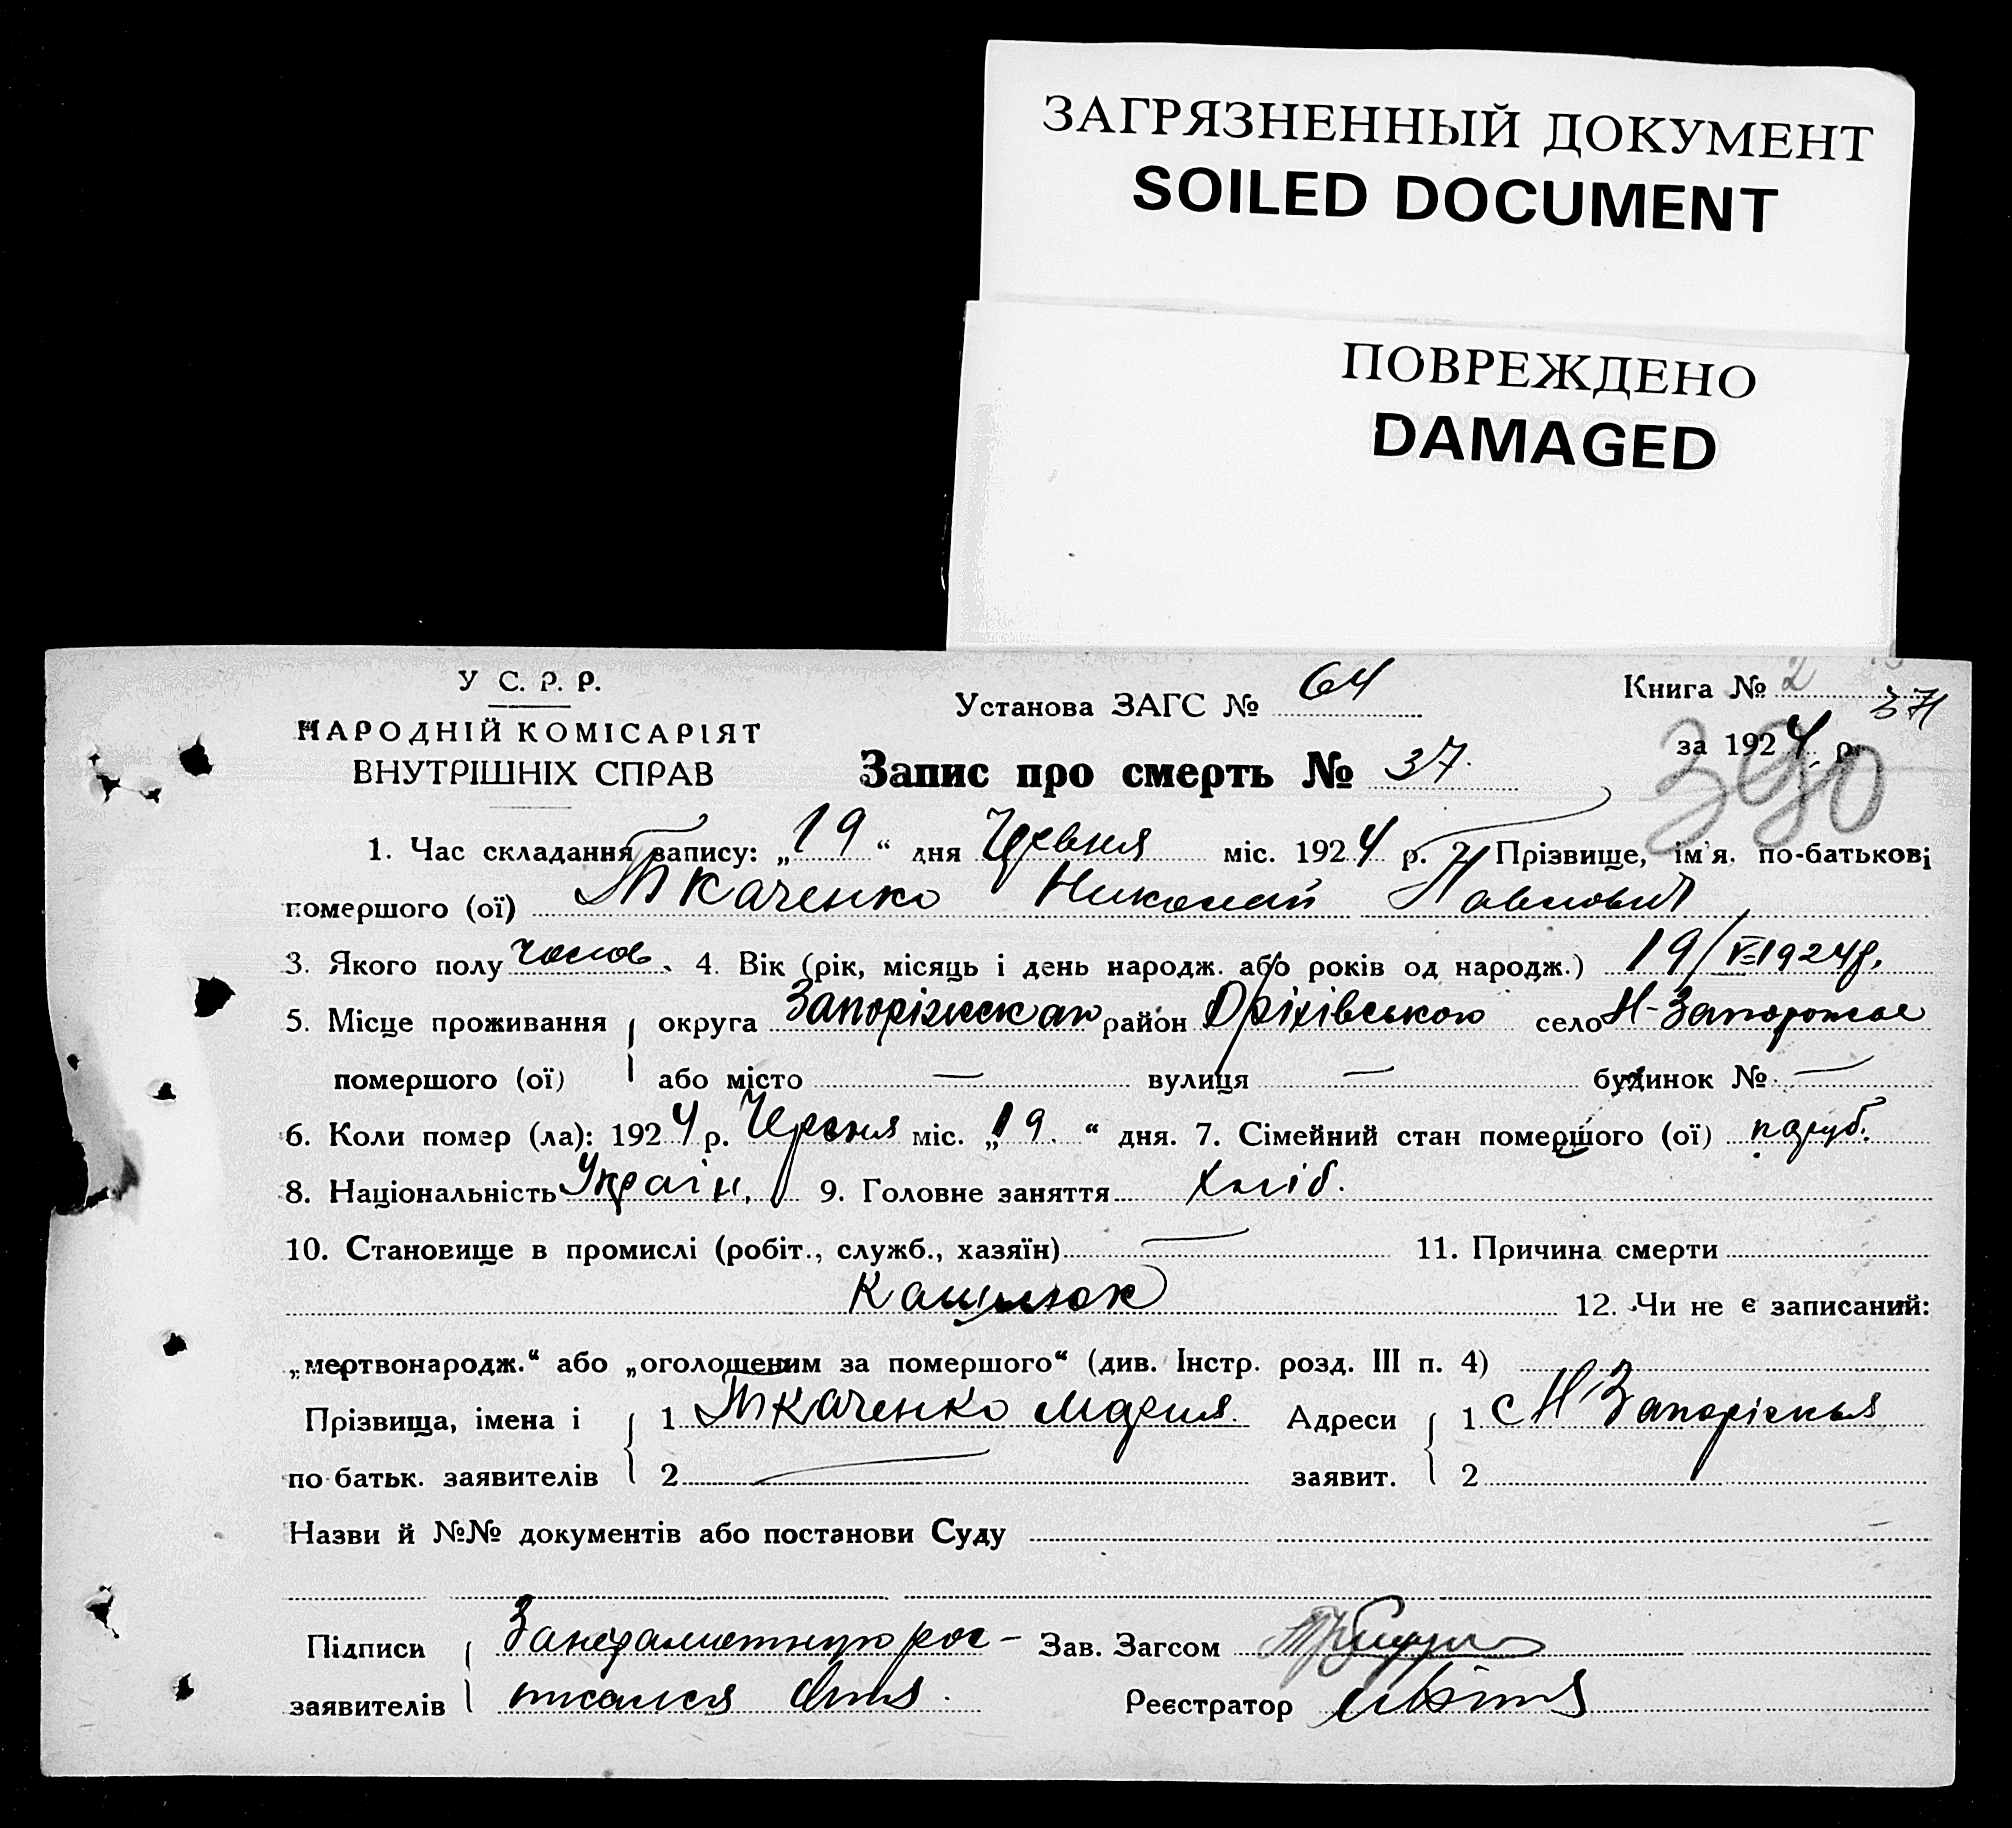 ЗАГРЯЗНЕННЫЙ ДОКУМЕНТ
SOILED DOCUMENT
ПОВРЕЖДЕНО
DAMAGED
У С. Р. Р.
НАРОДНІЙ КОМІСАРІЯТ
ВНУТРІШНІХ СПРАВ
Установа ЗАГС № 64
Книга № 2
37
за 1924 р.
390
Запис про смерть № 37.
1. Час складання запису: „19“ дня Червня міс. 1924 р. 2. Прізвище, ім'я, по-батькові
помершого (ої) Ткаченко Николай Павлович
3. Якого полу чолов. 4. Вік (рік, місяць і день народж. або років од народж.) 19/V-1924р.
5. Місце проживання округа Запоріжская район Оріхівською село Н-Запорожье
помершого (ої) або місто — вулиця — будинок № —
6. Коли помер (ла): 1924 р. Червня міс. „19.“ дня. 7. Сімейний стан помершого (ої) паруб.
8. Національність Україн. 9. Головне заняття хліб.
10. Становище в промислі (робіт., служб., хазяїн) — 11. Причина смерти
Кашлюк 12. Чи не є записаний:
„мертвонародж.“ або „оголошеним за помершого“ (див. Інстр. розд. III п. 4)
Прізвища, імена і 1 Ткаченко Мария Адреси 1 с Н Запоріжья
по батьк. заявителів 2 — заявит. 2
Назви й №№ документів або постанови Суду
Підписи Занеграмотную рос- Зав. Загсом
заявителів писался Реєстратор